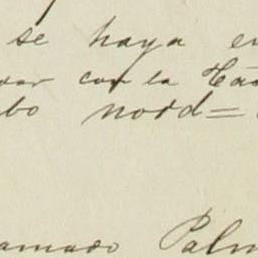 se haya en
dar con la Hac
bo nord=
amado Palm